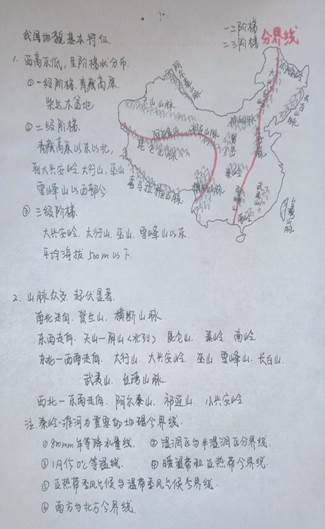 我国地貌基本特征
一二阶梯
二三阶梯 分界线
1. 西高东低，呈阶梯状分布
① 一级阶梯 青藏高原
柴达木盆地
② 二级阶梯
青藏高原以东以北，
到大兴安岭 太行山 巫山
雪峰山以西部分
③ 三级阶梯
大兴安岭 太行山 巫山 雪峰山以东
平均海拔500m以下
2. 山脉众多 起伏显著
南北走向 贺兰山 横断山脉
东西走向 天山—阴山 昆仑山 秦岭 南岭
东北—西南走向 太行山 大兴安岭 巫山 雪峰山 长白山
武夷山 台湾山脉
西北—东南走向 阿尔泰山 祁连山 小兴安岭
注 秦岭-淮河为重要的地理分界线
① 800mm年等降水量线 ② 湿润区与半湿润区分界线
③ 1月份0℃等温线 ④ 暖温带和亚热带分界线
⑤ 亚热带季风气候与温带季风气候分界线
⑥ 南方与北方分界线